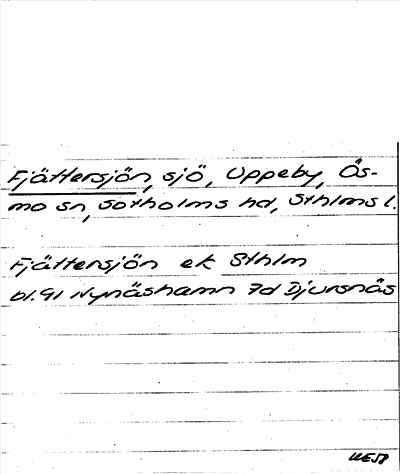 Fjättersjön, sjö, Uppeby, Ös-
mo sn, Sotholms hd, Sthlms l.
Fjättersjön ek Sthlm
bl. 91 Nynäshamn 7d Djursnäs